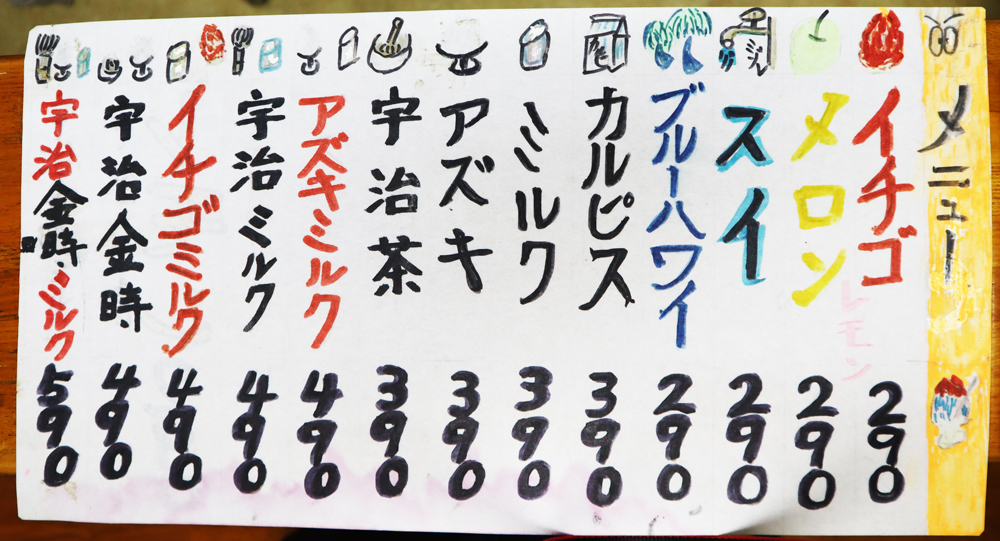 メニュー
イチゴ 290
レモン
メロン 290
スイ 290
ブルーハワイ 290
カルピス 390
ミルク 390
アズキ 390
宇治茶 390
アズキミルク 490
宇治ミルク 490
イチゴミルク 490
宇治金時 490
宇治金時・ミルク 590